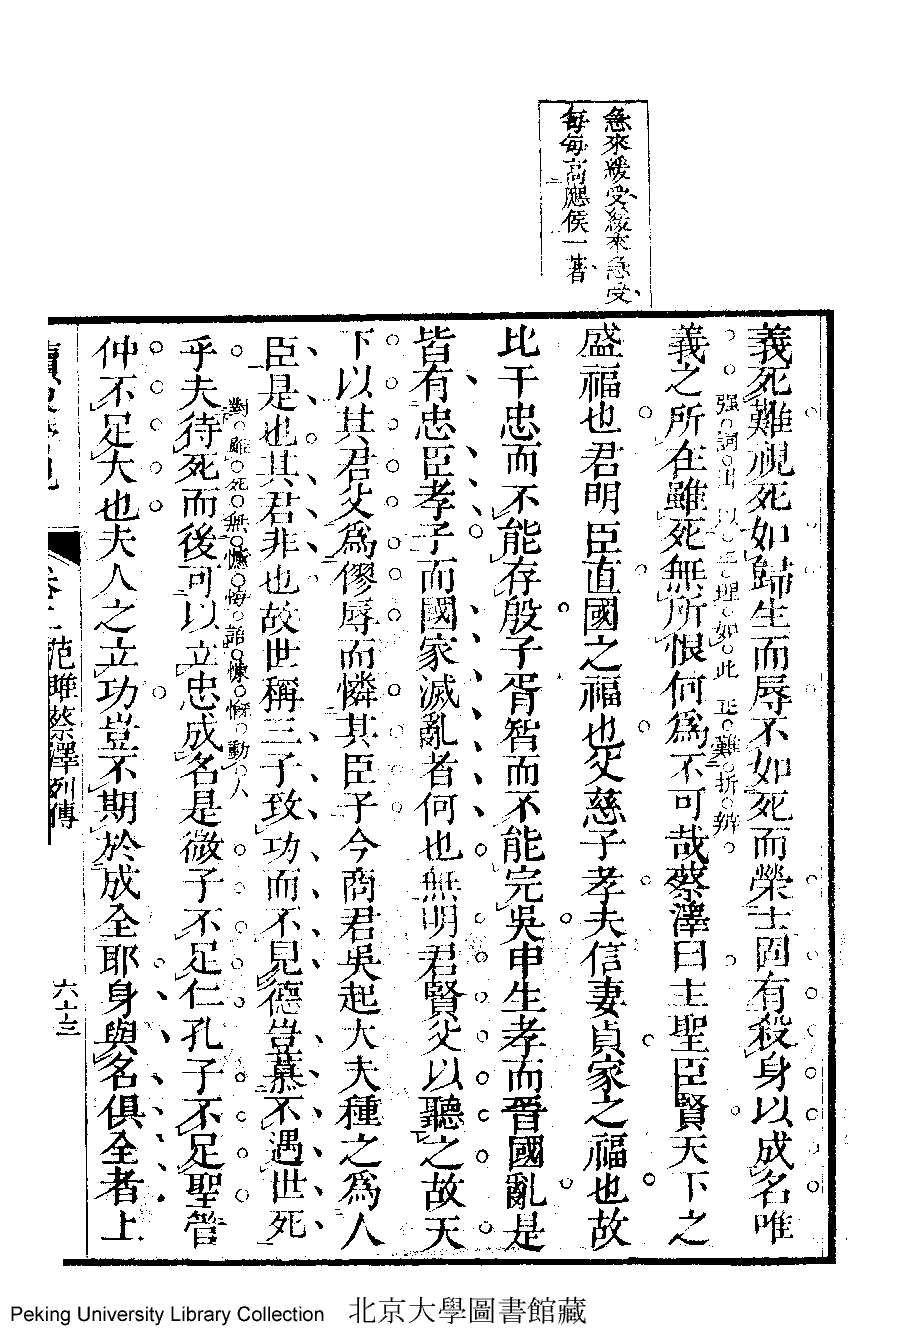 急來緩受緩來急受
每每高應侯一著
義死難視死如歸生而辱不如死而榮士固有殺身以成名唯
强詞出以正理如此正難折辨
義之所在雖死無所恨何爲不可哉蔡澤曰主聖臣賢天下之
盛福也君明臣直國之福也父慈子孝夫信妻貞家之福也故
比干忠而不能存殷子胥智而不能完吳申生孝而晋國亂是
皆有忠臣孝子而國家滅亂者何也無明君賢父以聽之故天
下以其君父爲僇辱而憐其臣子今商君吳起大夫種之爲人
臣是也其君非也故世稱三子致功而不見德豈慕不遇世死
對雖死無憾悔諂悚慨動人
乎夫待死而後可以立忠成名是微子不足仁孔子不足聖管
仲不足大也夫人之立功豈不期於成全耶身與名俱全者上
范雎蔡澤列傳
六十三
Peking University Library Collection 北京大學圖書館藏